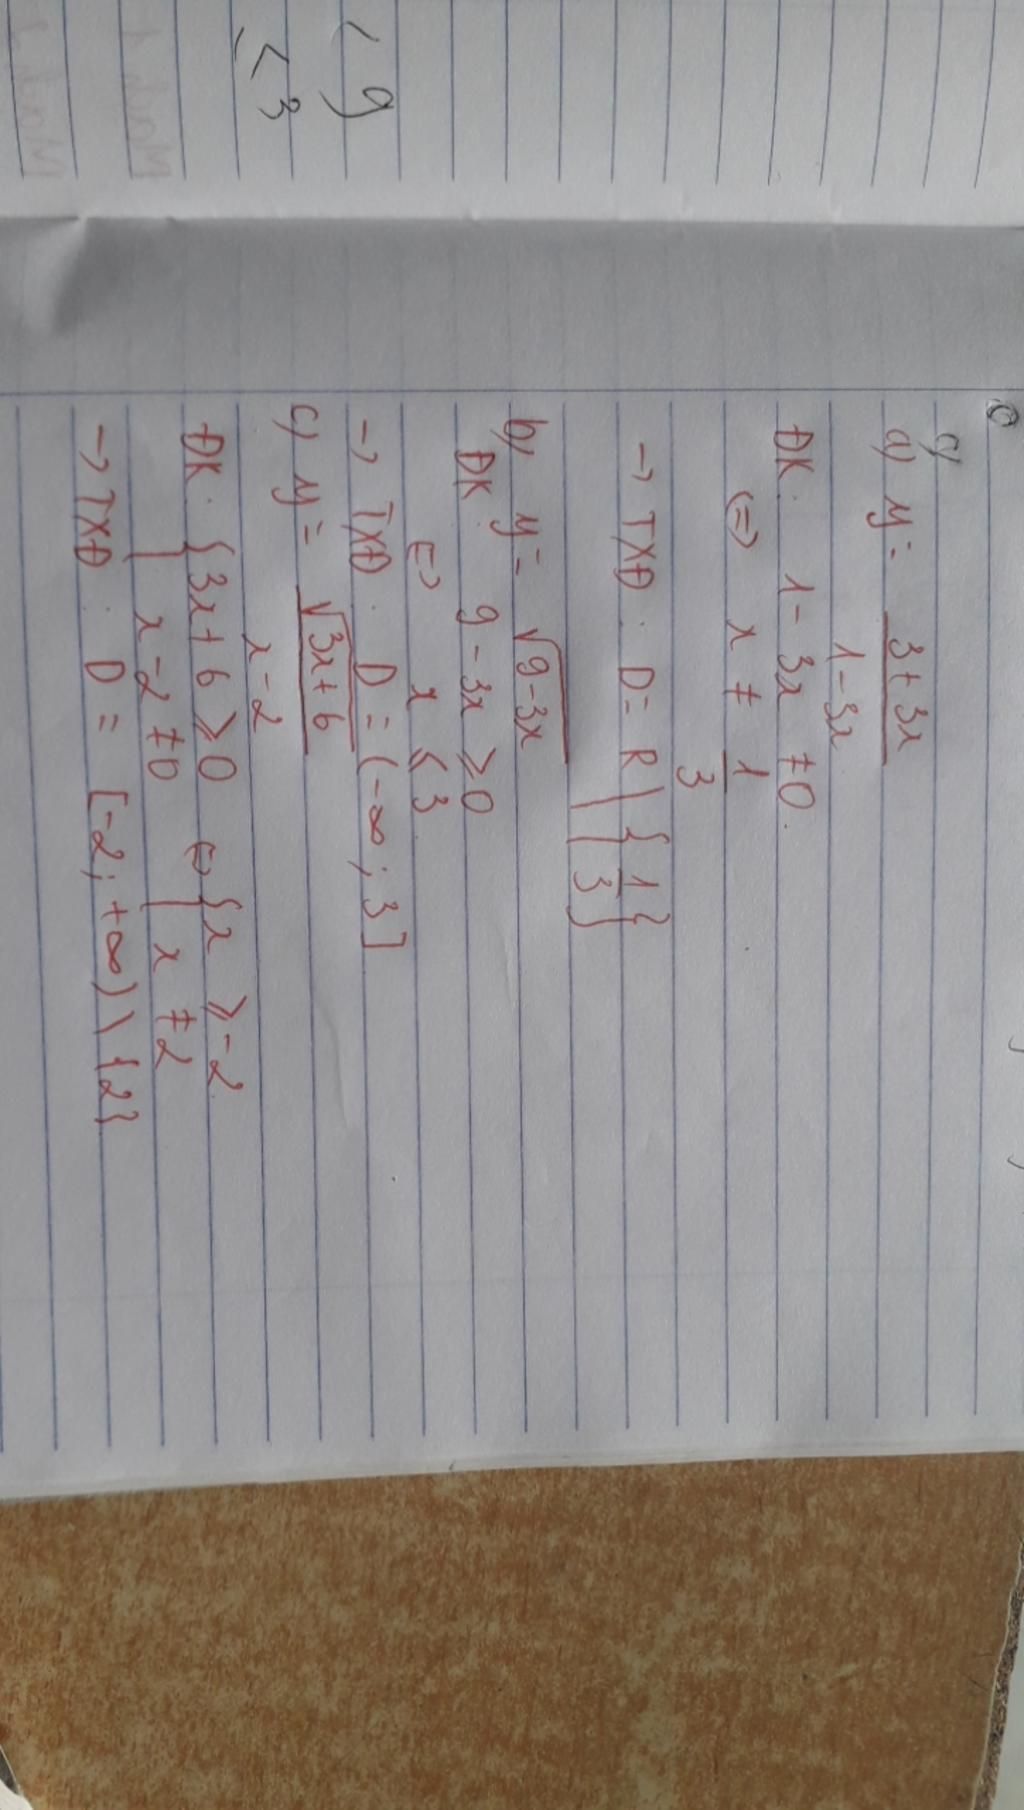 < 9
≤ 3
a) y = \frac{3+3x}{1-3x}
ĐK: 1 - 3x ≠ 0.
(=) x ≠ \frac{1}{3}
→ TXĐ: D = R \ { \frac{1}{3} }
b, y = √(9-3x)
ĐK: 9 - 3x ≥ 0
⇔ x ≤ 3
→ TXĐ: D = (-∞; 3]
c) y = \frac{√(3x+6)}{x-2}
ĐK: { 3x+6 ≥ 0 ⇔ { x ≥ -2
x - 2 ≠ 0 x ≠ 2
→ TXĐ: D = [-2; +∞) \ {2}